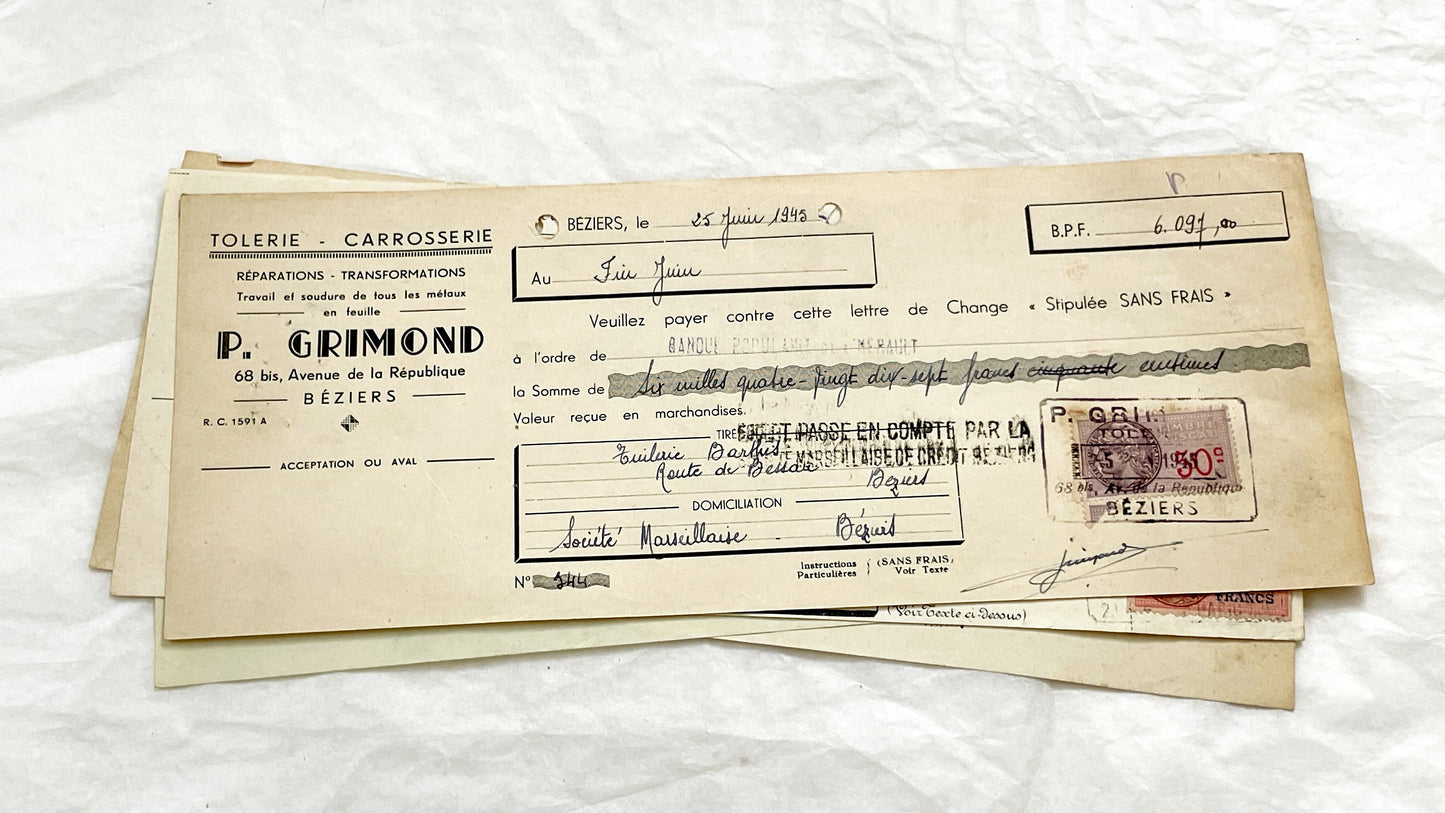 TOLERIE - CARROSSERIE
RÉPARATIONS - TRANSFORMATIONS
Travail et soudure de tous les métaux
en feuille
P. GRIMOND
68 bis, Avenue de la République
BÉZIERS
R. C. 1591 A
ACCEPTATION OU AVAL
BÉZIERS, le 25 Juin 1945
B.P.F. 6.097,00
Au Fin Juin
Veuillez payer contre cette lettre de Change « Stipulée SANS FRAIS »
à l'ordre de BANQUE POPULAIRE HERAULT
la Somme de Six milles quatre-vingt dix-sept francs cinquante centimes
Valeur reçue en marchandises.
TIRÉ
ET PASSE EN COMPTE PAR LA
MARSEILLAISE DE CREDIT
Tuilerie
Route de
Béziers
DOMICILIATION
Société Marseillaise - Béziers
N° 344
Instructions Particulières (SANS FRAIS) Voir Texte
P. GRI
TOL
50c
68 bis, Av. de la République
BÉZIERS
(Voir Texte ci-dessus)
FRANCS